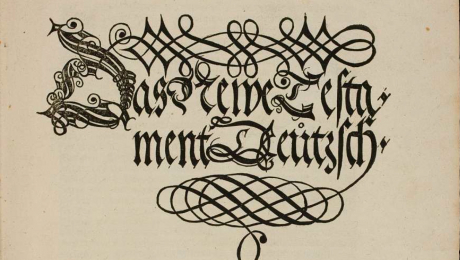 Das Newe Testa-
ment Deůtzsch.